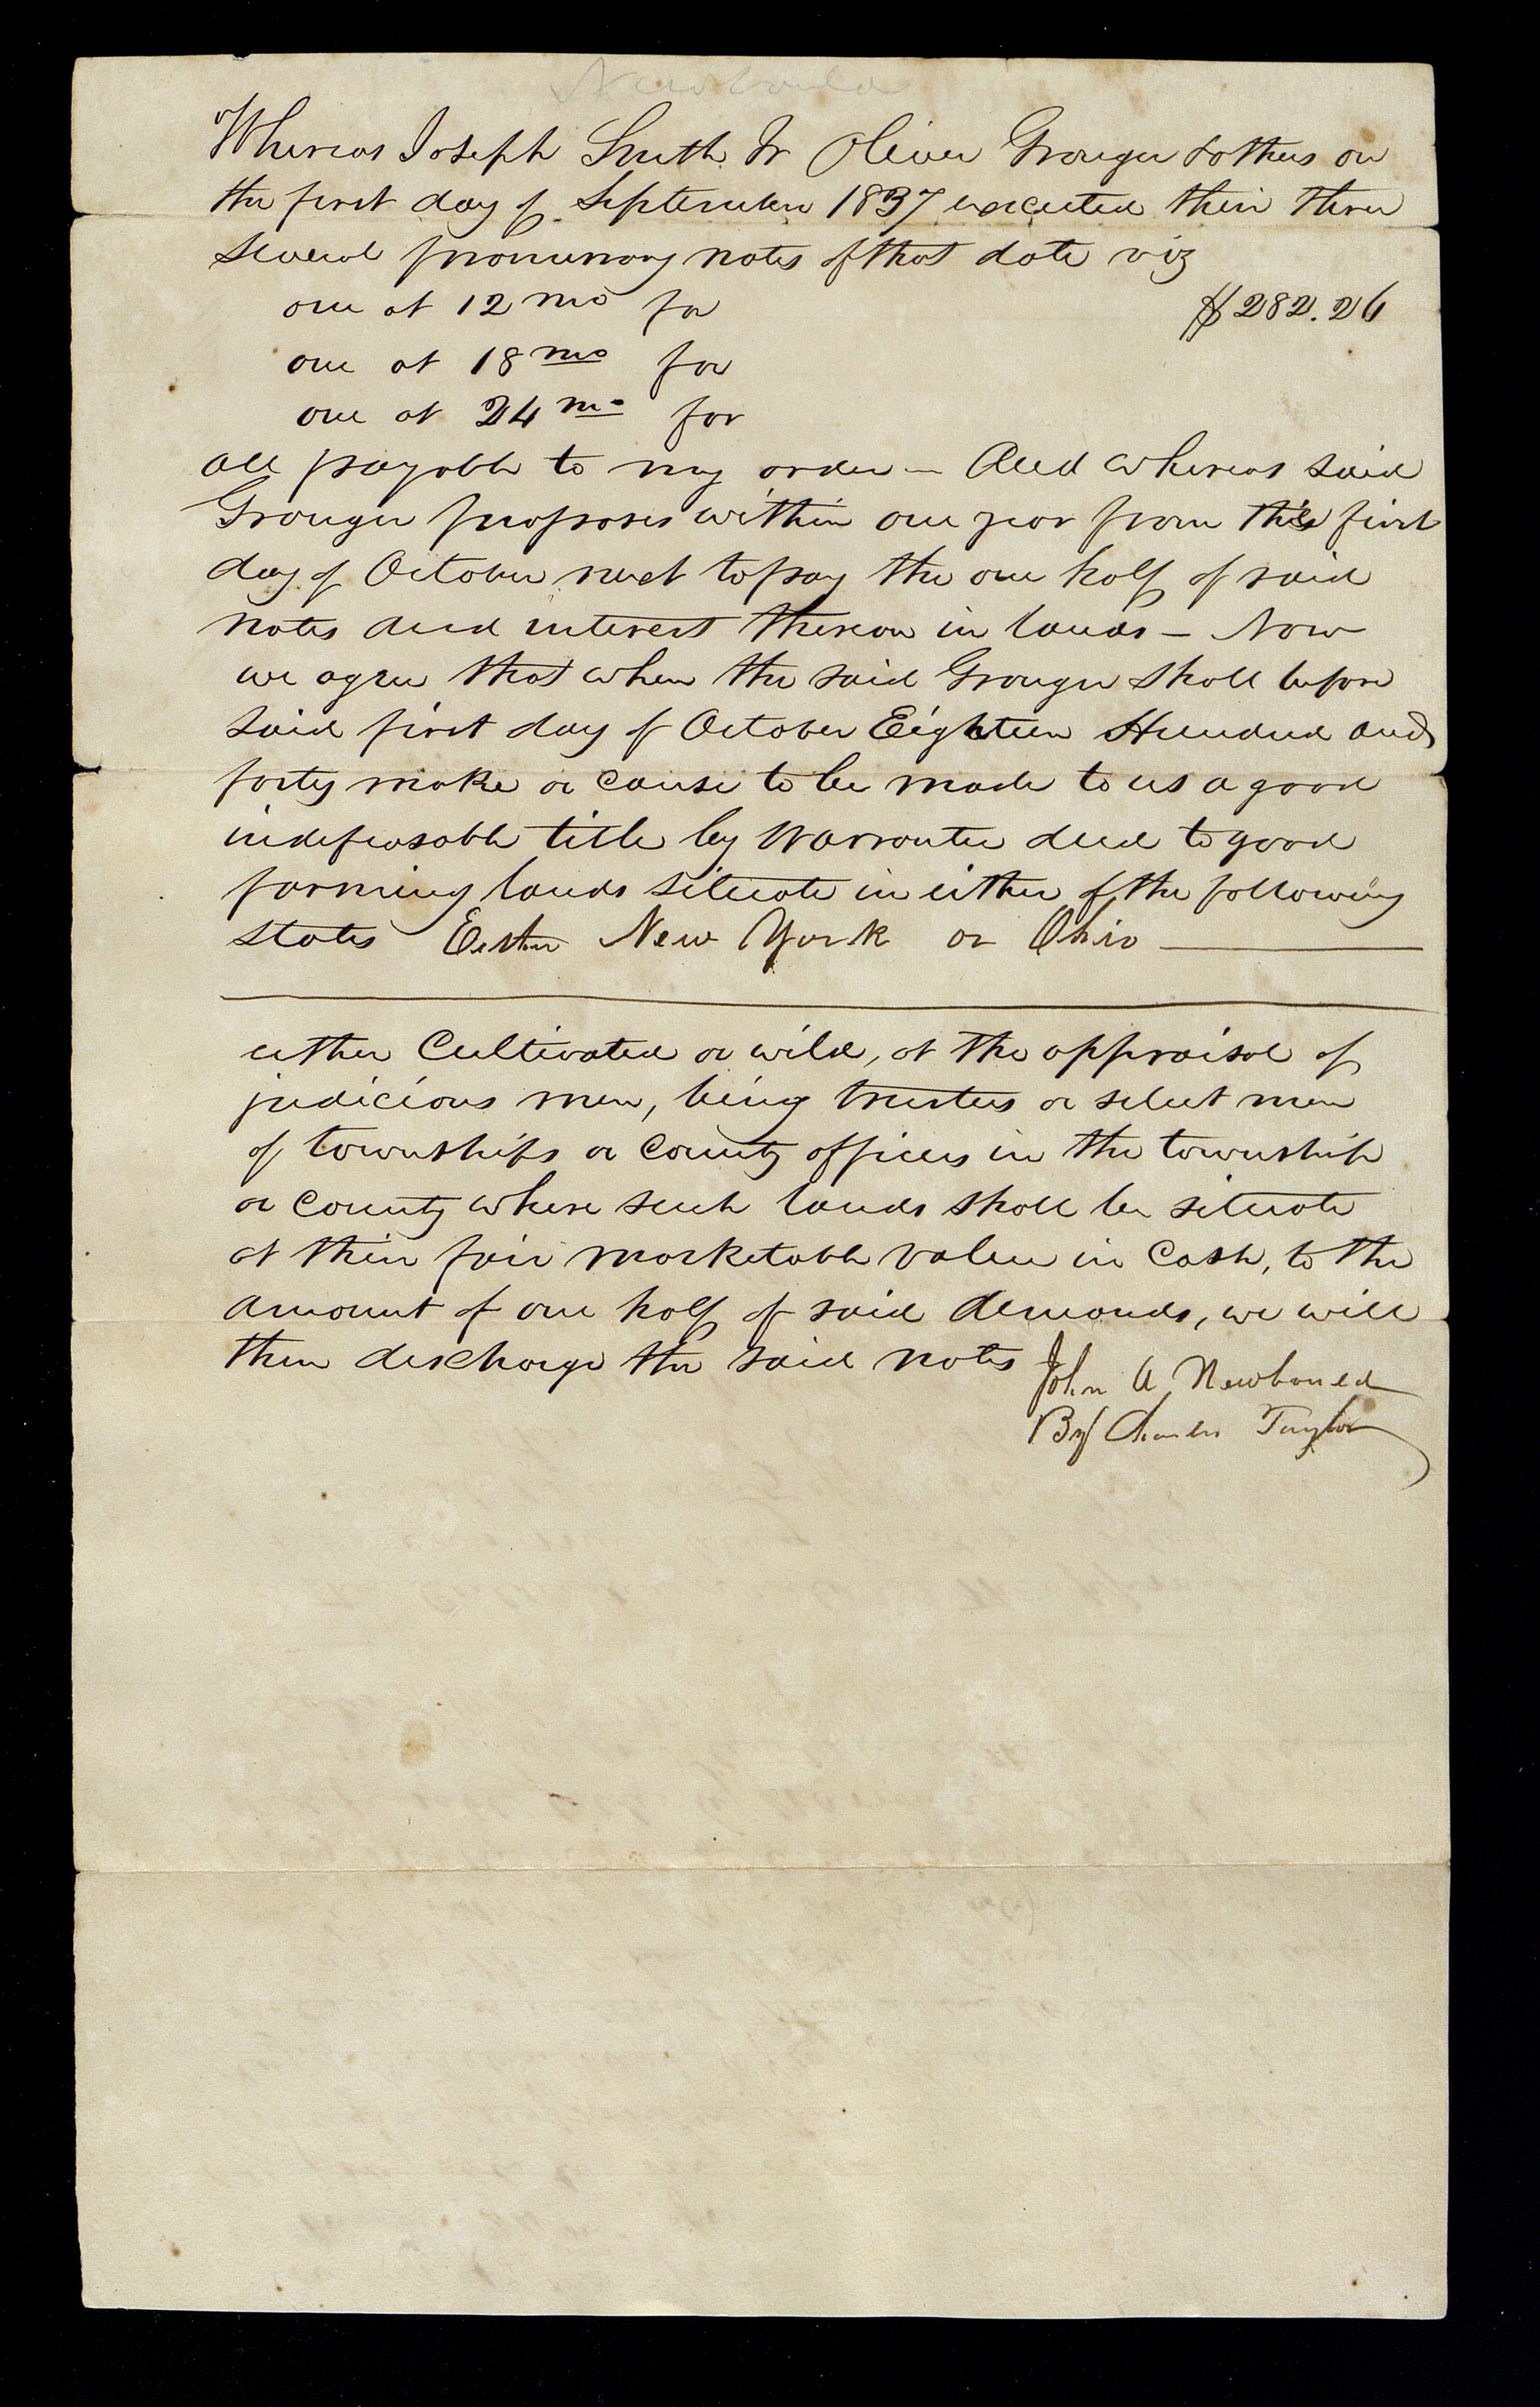 Newbould
Whereas Joseph Smith Jr Oliver Granger & others on
the first day of September 1837 executed their three
several promissory notes of that date viz
one at 12 mo for $282.26
one at 18 mo for
one at 24 mo for
all payable to my order — And whereas said
Granger proposes within one year from the first
day of October next to pay the one half of said
notes and interest thereon in lands — Now
we agree that when the said Granger shall before
said first day of October Eighteen Hundred and
forty make or cause to be made to us a good
indefeasable title by Warrantee deed to good
farming lands situate in either of the following
states Eather New York or Ohio
either Cultivated or wild, at the appraisal of
judicious men, being trustees or select men
of townships or County officers in the township
or County where such lands shall be situate
at their fair marketable value in Cash, to the
amount of one half of said demands, we will
then discharge the said notes
John A Newbould
By Charles Taylor